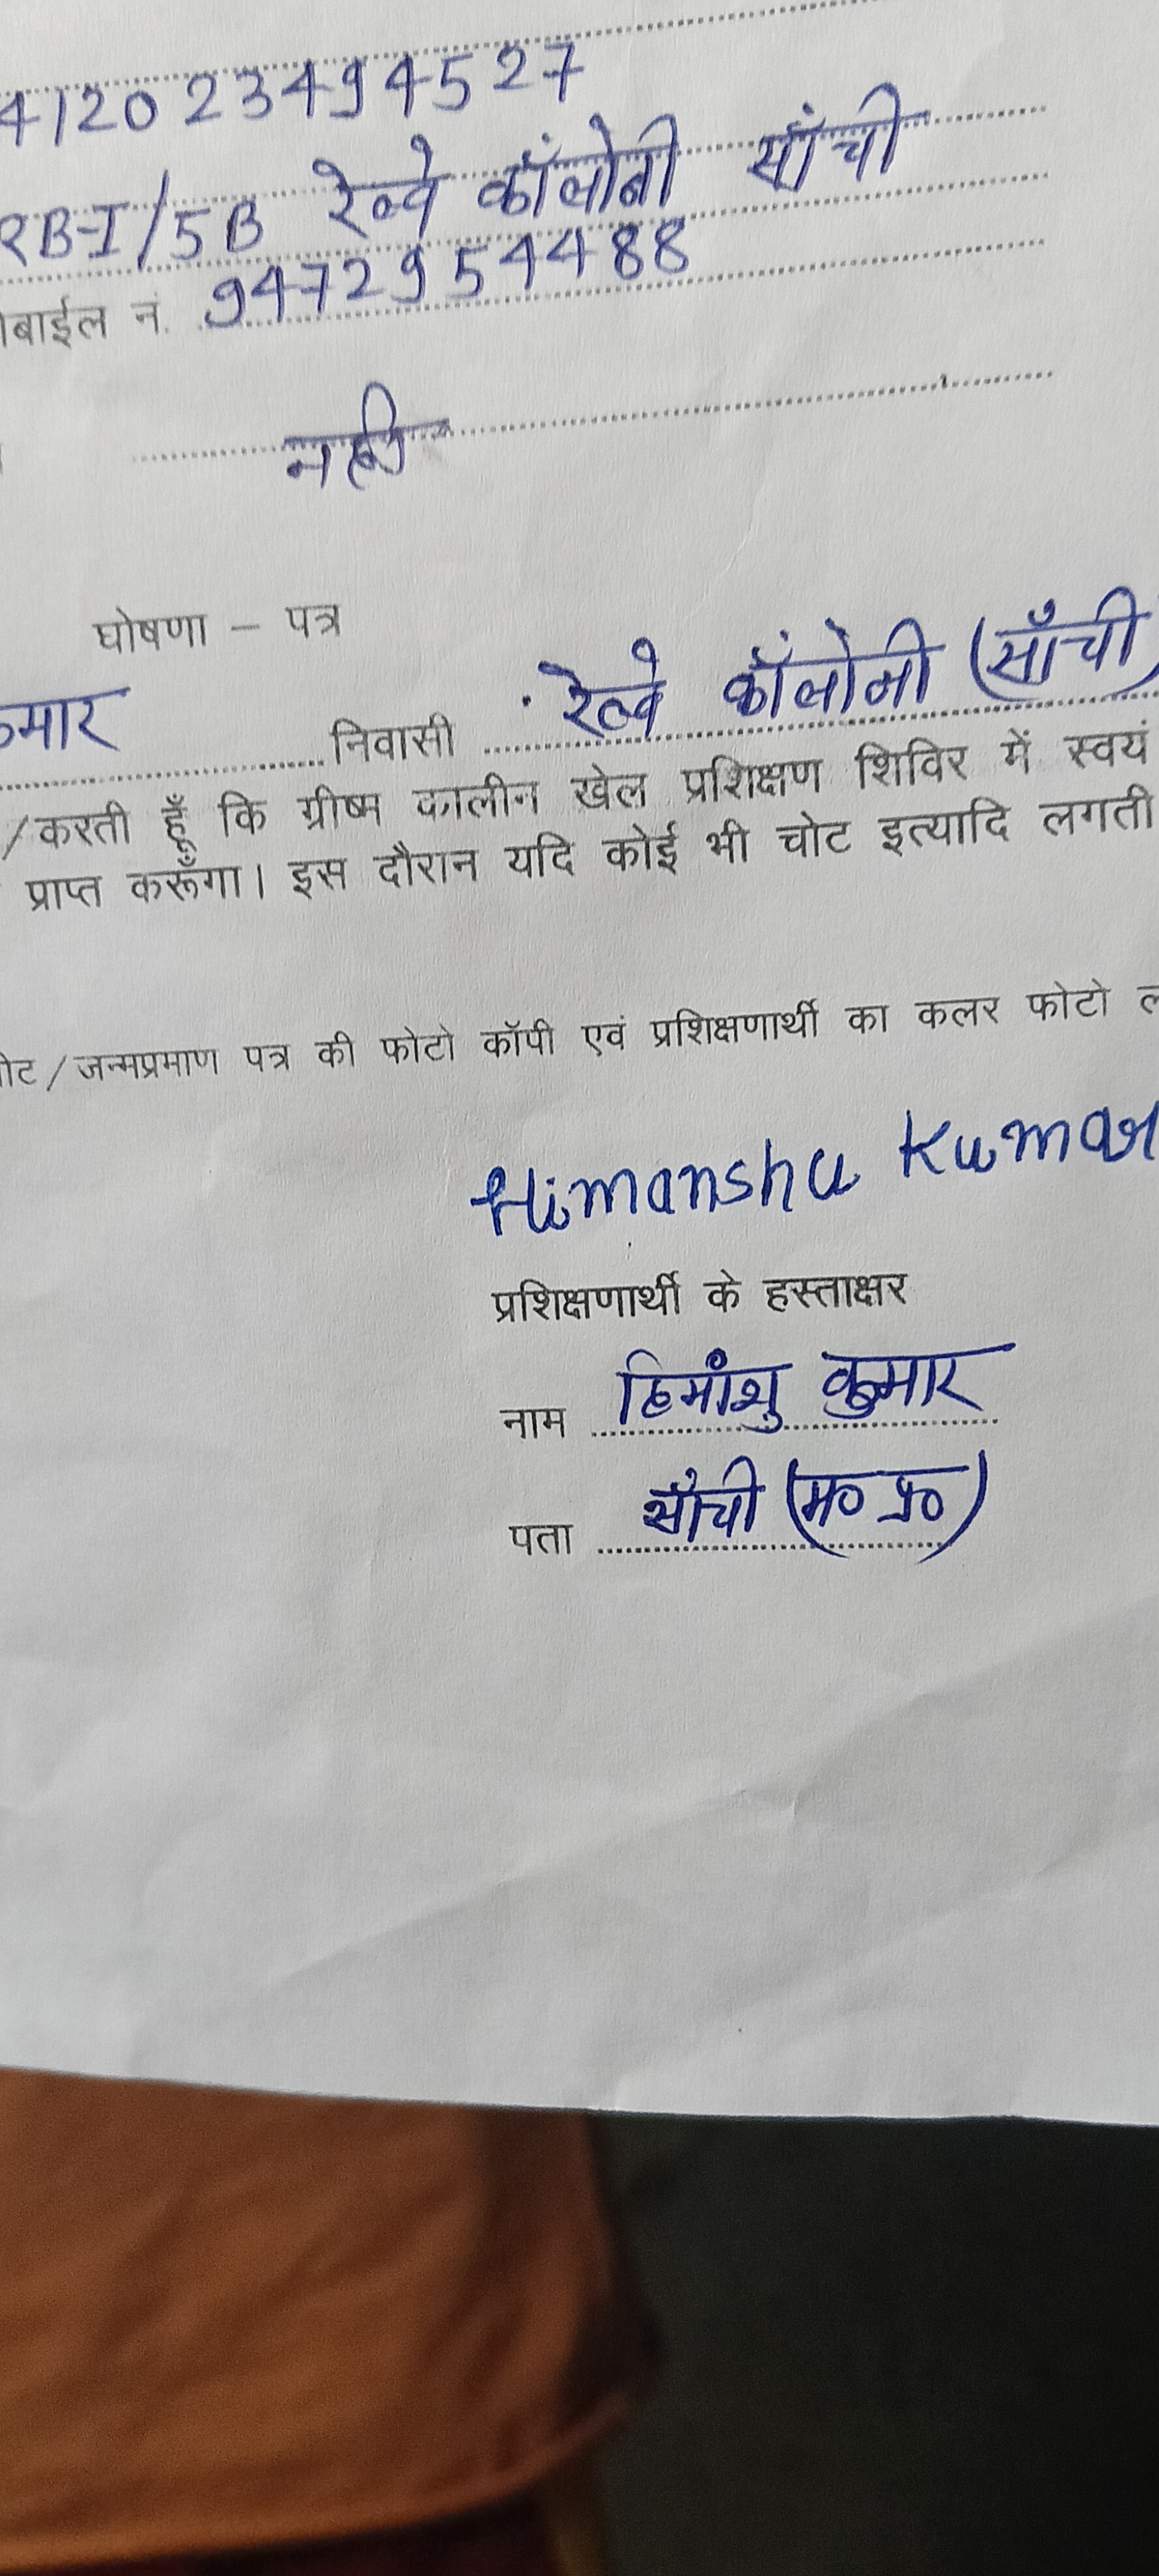 412023494527
RB-I/5B रेल्वे कॉलोनी साँची
बाईल नं. 9472954488
नही
घोषणा – पत्र
कुमार निवासी रेल्वे कॉलोनी (साँची)
/करती हूँ कि ग्रीष्म कालीन खेल प्रशिक्षण शिविर में स्वयं
प्राप्त करूँगा। इस दौरान यदि कोई भी चोट इत्यादि लगती
/जन्मप्रमाण पत्र की फोटो कॉपी एवं प्रशिक्षणार्थी का कलर फोटो
Himanshu Kumar
प्रशिक्षणार्थी के हस्ताक्षर
नाम हिमांशु कुमार
पता साँची (म० प्र०)